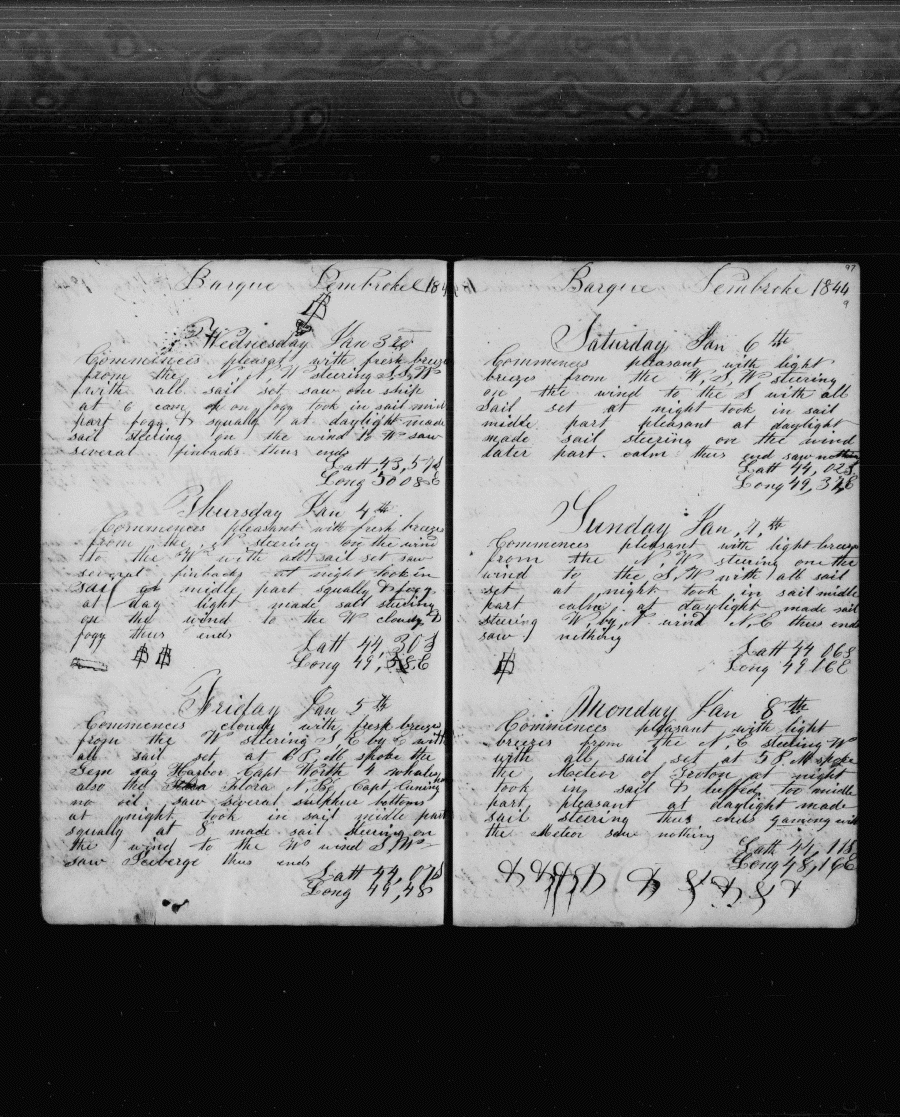 Barque Pembroke 184
Wednesday Jan 3
Commences pleasat with fresh breeze
from the N N W steering S, S, W
with all sail set saw one ship
at 6 came on fogg took in sail mid
part foggy & squally at daylight made
sail steering on the wind to W saw
several finbacks thus ends
Latt 43,57S
Long 50 08 E
Thursday Jan 4th
Commences pleasant with fresh breezes
from the N steering by the wind
to the W with all sail set saw
several finbacks at night took in
sail middle part squally & fogg
at day light made sail steering
on the wind to the W cloudy &
fogg thus ends
Latt 44,30S
Long 49, E
Friday Jan 5th
Commences cloudy with fresh breezes
from the W steering S E by E with
all sail set at 6 P, M spoke the
Gem sag Harbor Capt Worth 4 whales
also the Flora N Capt
no oil saw several sulphur bottoms
at night took in sail middle part
squally at 8 made sail steering on
the wind to the W wind S, W
saw Iceberge thus ends
Latt 44,07S
Long 49,48
97
Barque Pembroke 1844
Saturday Jan 6th
Commences pleasant with light
breezes from the W, S, W steering
one the wind to the S with all
sail set at night took in sail
middle part pleasant at daylight
made sail steering on the wind
later part calm thus end saw nothing
Latt 44,02S
Long 49,32E
Sunday Jan, 7,th
Commences pleasant with light breezes
from the N, W steering one the
wind to the S, W with all sail
set at night took in sail middle
part calm at daylight made sail
steering W, by, N wind N, E thus ends
saw nothing
Latt 44 06S
Long 49 16E
Monday Jan 8th
Commences pleasant with light
breezes from the N, E steering W
with all sail set at 5 P, M spoke
the Meteor of Groton at night
took in sail & luffed too middle
part pleasant at daylight made
sail steering thus ends gamong with
the Meteor saw nothing
Latt 44,11S
Long 48,19E